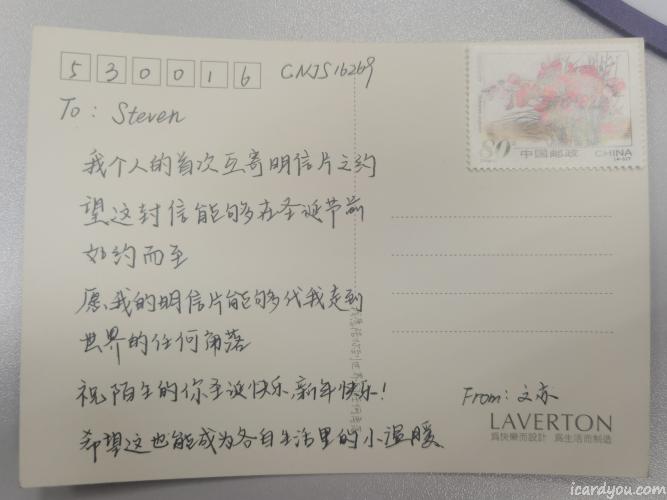 530016 CNJS16269
80分 中国邮政 CHINA
To: Steven
我个人的首次互寄明信片之约
望这封信能够在圣诞节前
如约而至
愿我的明信片能够代我走到
世界的任何角落
祝陌生的你圣诞快乐,新年快乐!
希望这也能成为各自生活里的小温暖
From: 文亦
LAVERTON
為快樂而設計 為生活而制造
icardyou.com